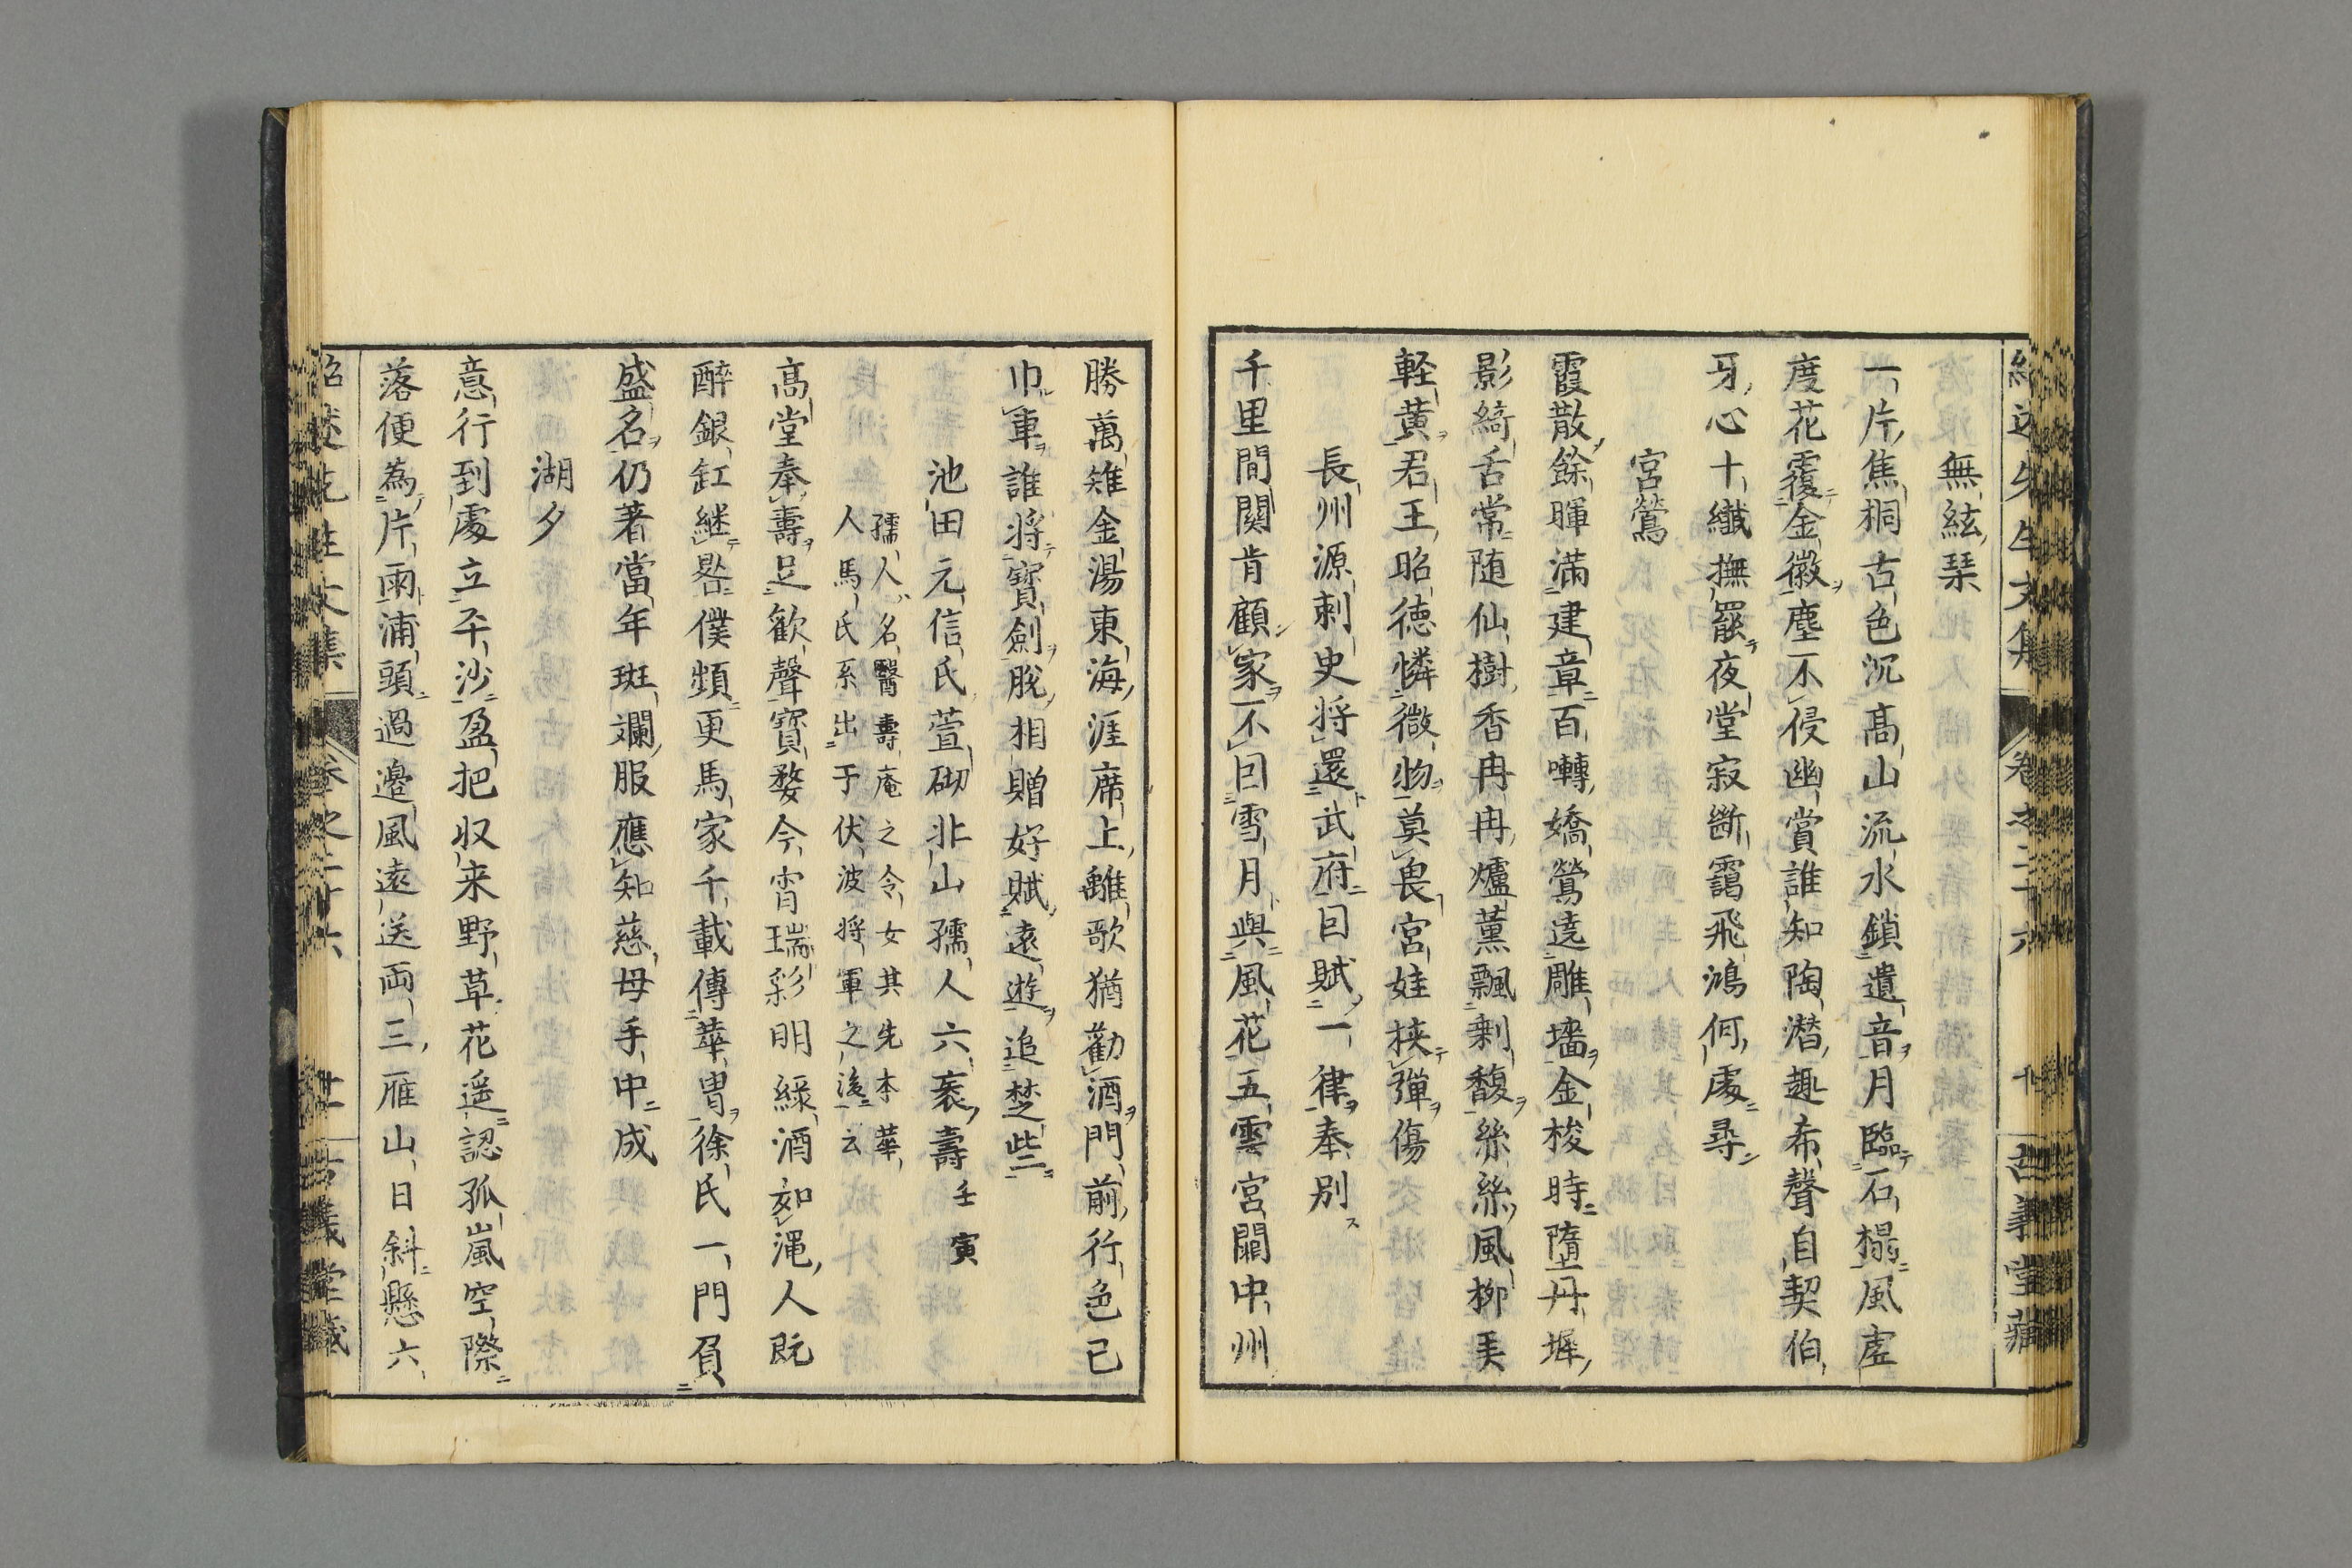 無絃琴
一片焦桐古色沉高山流水鎖遺音月臨石榻風虗
度花覆金徽塵不侵幽賞誰知陶潜趣希聲自契伯
牙心十纖撫罷夜堂寂斷靄飛鴻何處尋
宮鶯
霞散餘暉滿建章百囀嬌鶯遶雕墻金梭時墮丹墀
影綺舌常随仙樹香冉冉爐薫飄剰馥絲絲風柳美
軽黄君王昭徳憐微物莫畏宮娃挟彈傷
長州源刺史将還武府囙賦一律奉別
千里間関肯顧家不囙雪月與風花五雲宮闕中州
勝萬雉金湯東海涯席上離歌猶勸酒門前行色已
巾車誰将寳劍脫相贈好賦遠遊追楚些
池田元信氏萱砌北山孺人六袠壽壬寅
孺人名醫壽庵之令女其先本華
人馬氏系出于伏波将軍之後云
高堂奉壽足歓聲寳婺今宵瑞彩明緑酒如澠人既
醉銀缸継晷僕頻更馬家千載傳華冑徐氏一門負
盛名仍著當年斑斕服應知慈母手中成
湖夕
意行到處立平沙盈把収来野草花遥認孤嵐空際
落便為片雨浦頭過邊風遠送両三雁山日斜懸六